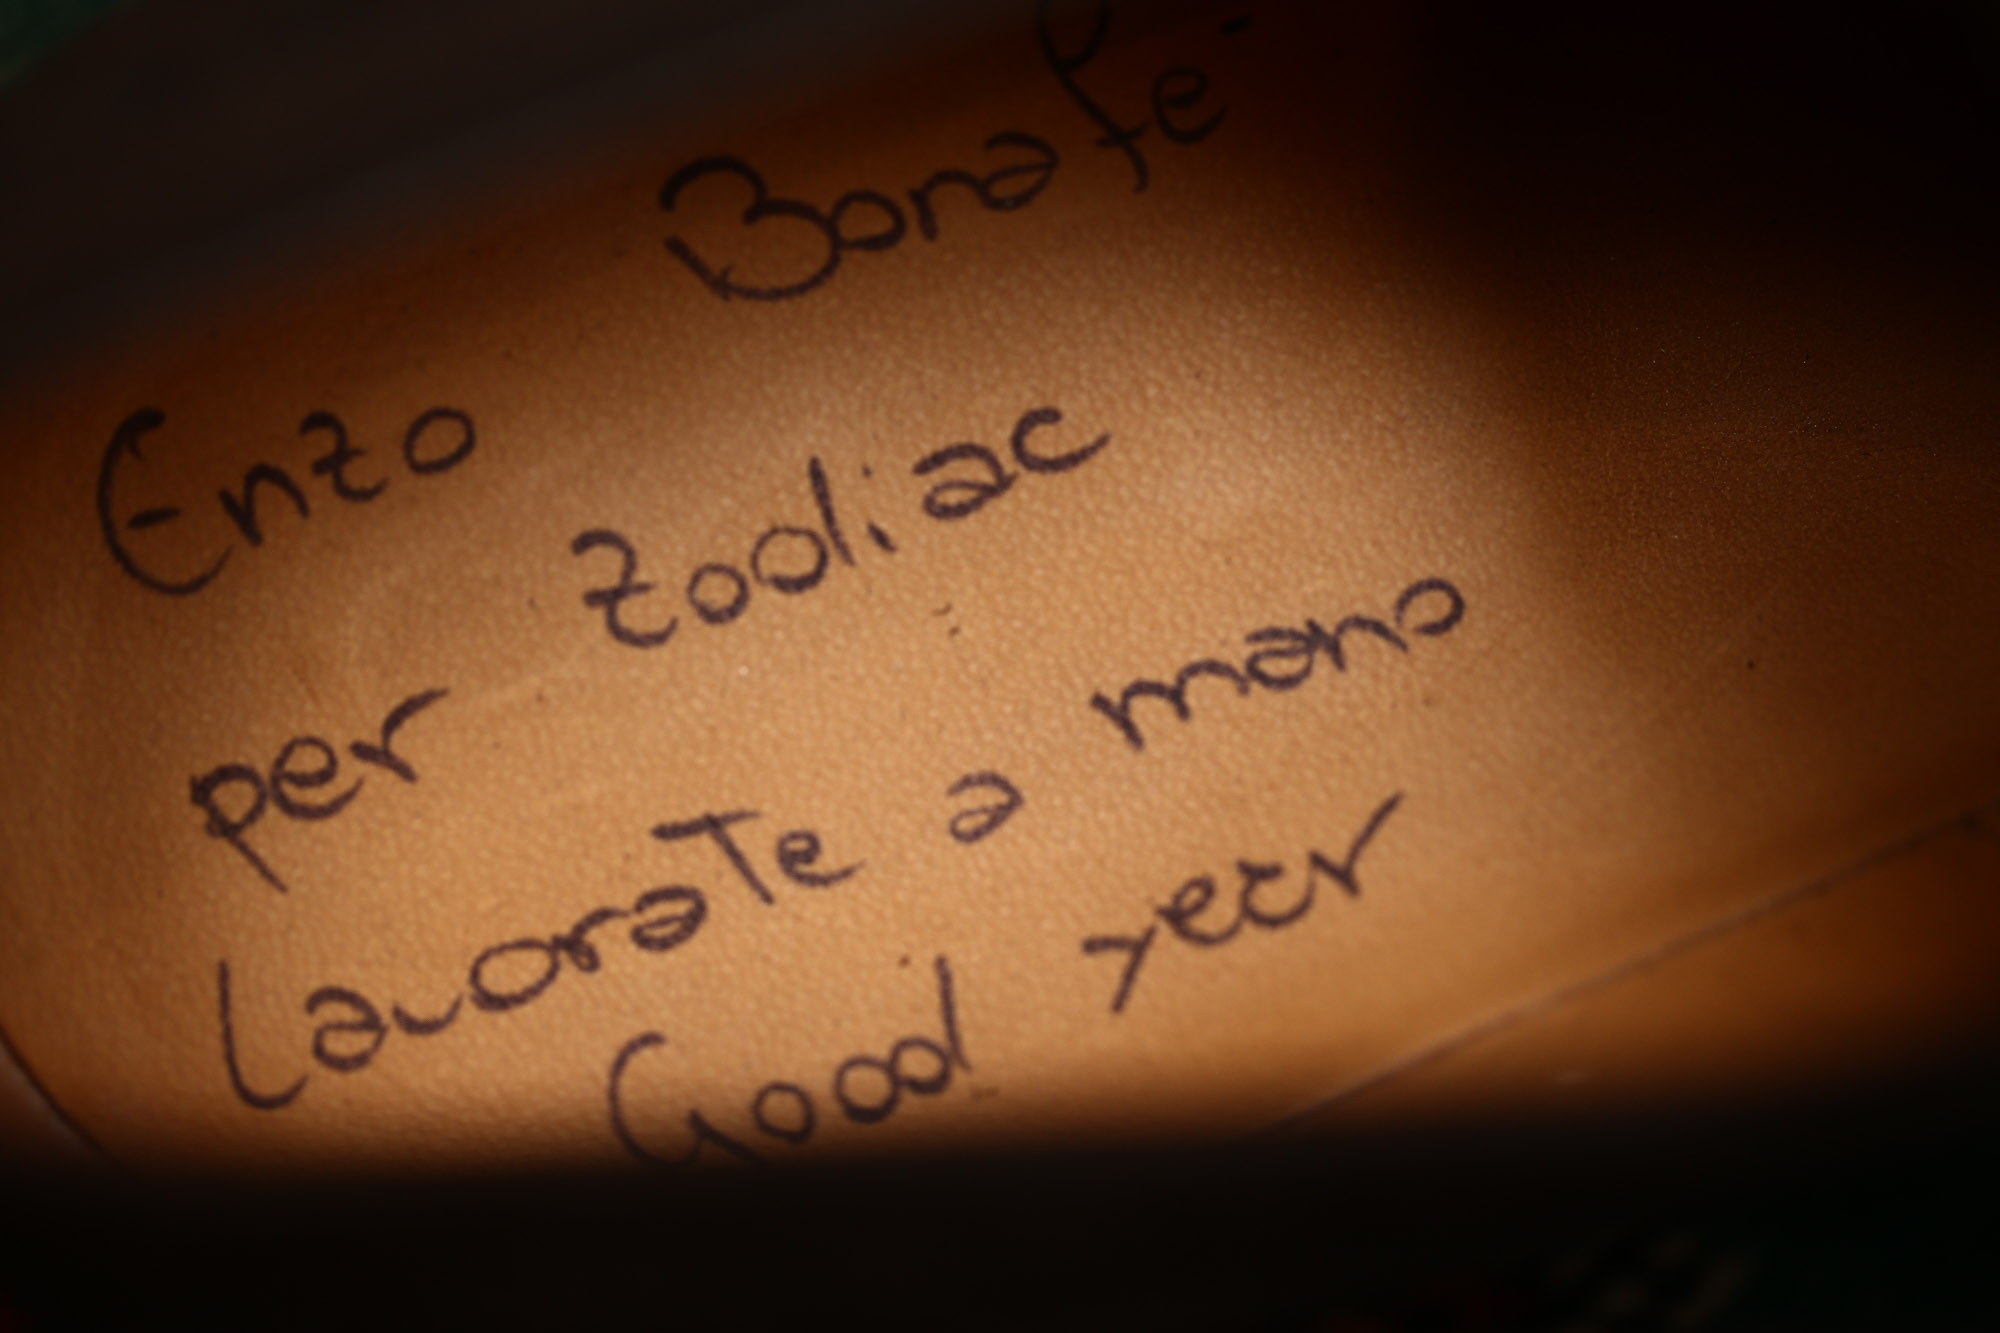 Enzo Bonafe'
per Zodiac
Lavorate a mano
Good year